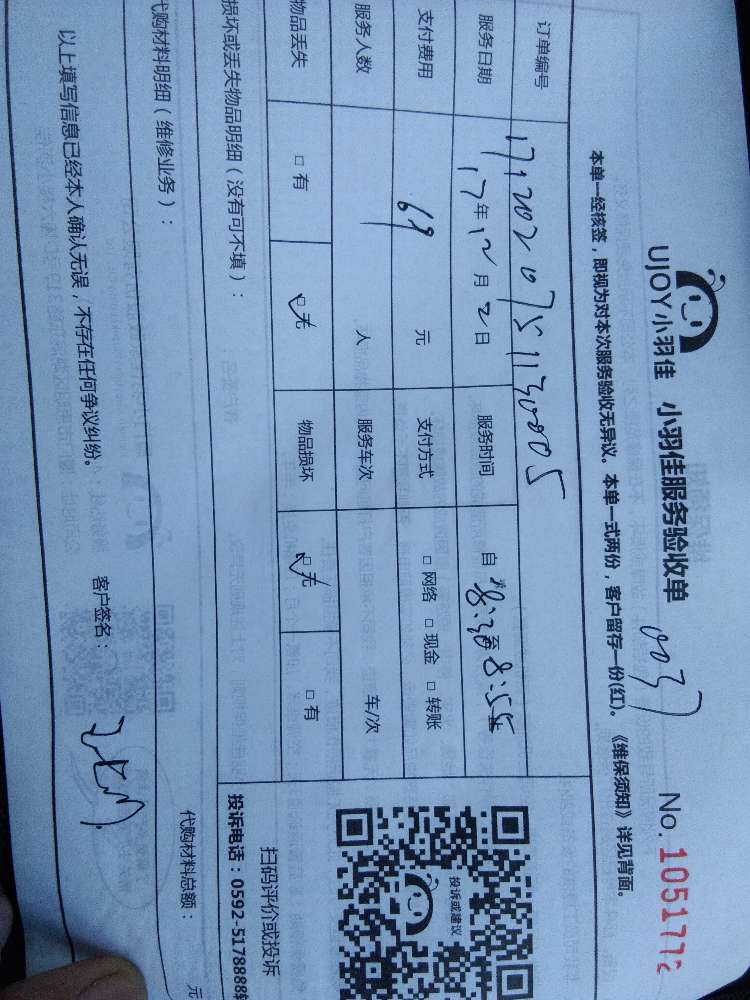 UJOY小羽佳 小羽佳服务验收单 0037 No. 1051772
本单一经核签，即视为对本次服务验收无异议。本单一式两份，客户留存一份(红)。《维保须知》详见背面。
订单编号 1712020751130005
服务日期 17年12月2日 服务时间 自 8:30至8:55止
支付费用 69 元 支付方式 □ 网络 □ 现金 □ 转账
服务人数 1 人 服务车次 车/次
物品丢失 □ 有 ☑ 无 物品损坏 ☑ 无 □ 有
投诉或建议
扫码评价或投诉
投诉电话：0592-5178888转
损坏或丢失物品明细（没有可不填）：
代购材料明细（维修业务）： 代购材料总额： 元
以上填写信息已经本人确认无误，不存在任何争议纠纷。 客户签名：